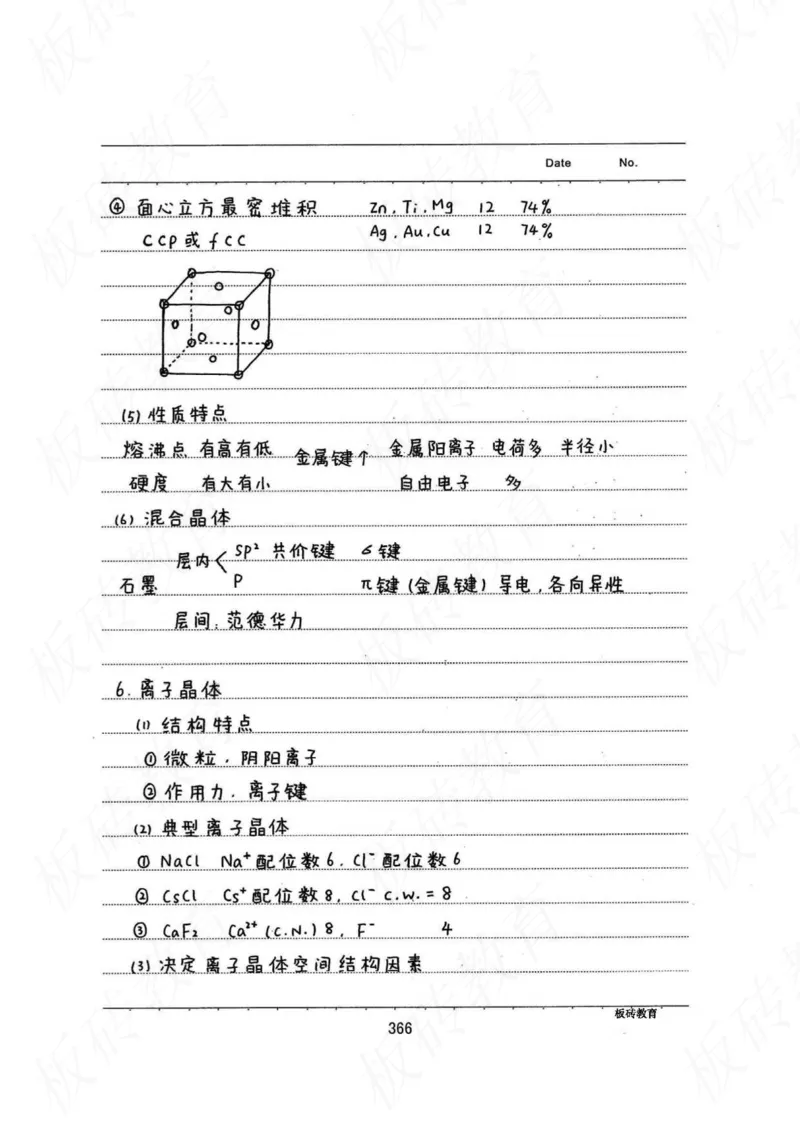 Date No.
④ 面心立方最密堆积 Zn, Ti, Mg 12 74%
CCP 或 fCC Ag, Au, Cu 12 74%
(5) 性质特点
熔沸点 有高有低 金属键↑ 金属阳离子 电荷多 半径小
硬度 有大有小 自由电子 多
(6) 混合晶体
层内 SP² 共价键 σ键
石墨 P π键 (金属键) 导电, 各向异性
层间: 范德华力
6. 离子晶体
(1) 结构特点
① 微粒. 阴阳离子
② 作用力. 离子键
(2) 典型离子晶体
① NaCl Na⁺配位数6. Cl⁻配位数6
② CsCl Cs⁺配位数8, Cl⁻ C.W. = 8
③ CaF₂ Ca²⁺ (C.N.) 8, F⁻ 4
(3) 决定离子晶体空间结构因素
板砖教育
366